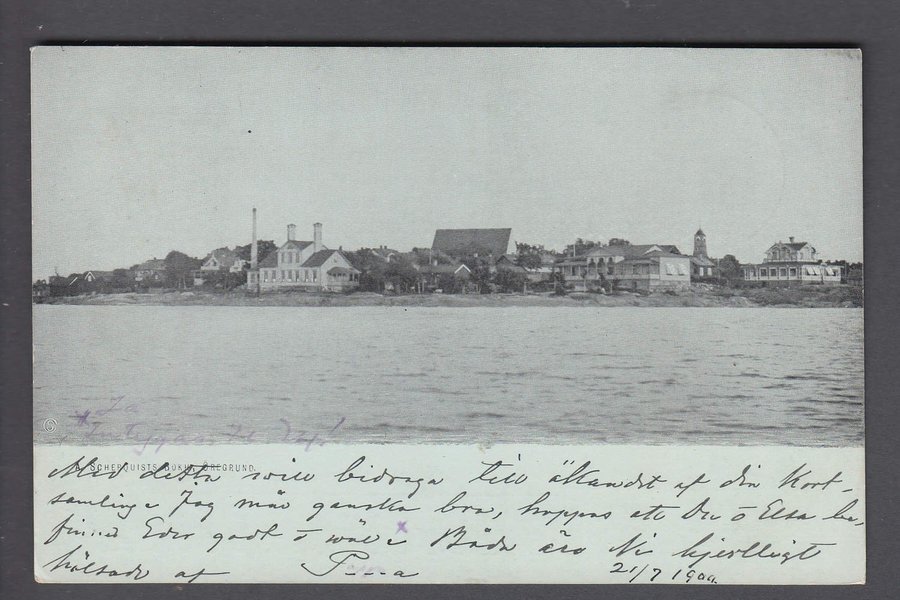 Ja
SCHERQUISTS BOKH. ÖREGRUND.
Med detta vill bidraga till ökandet af din Kort-
samling. Jag mår ganska bra, hoppas att Du o Elsa be-
finna Eder godt o wäl. Båda äro Ni hjertligt
hälsade af
21/7 1900.